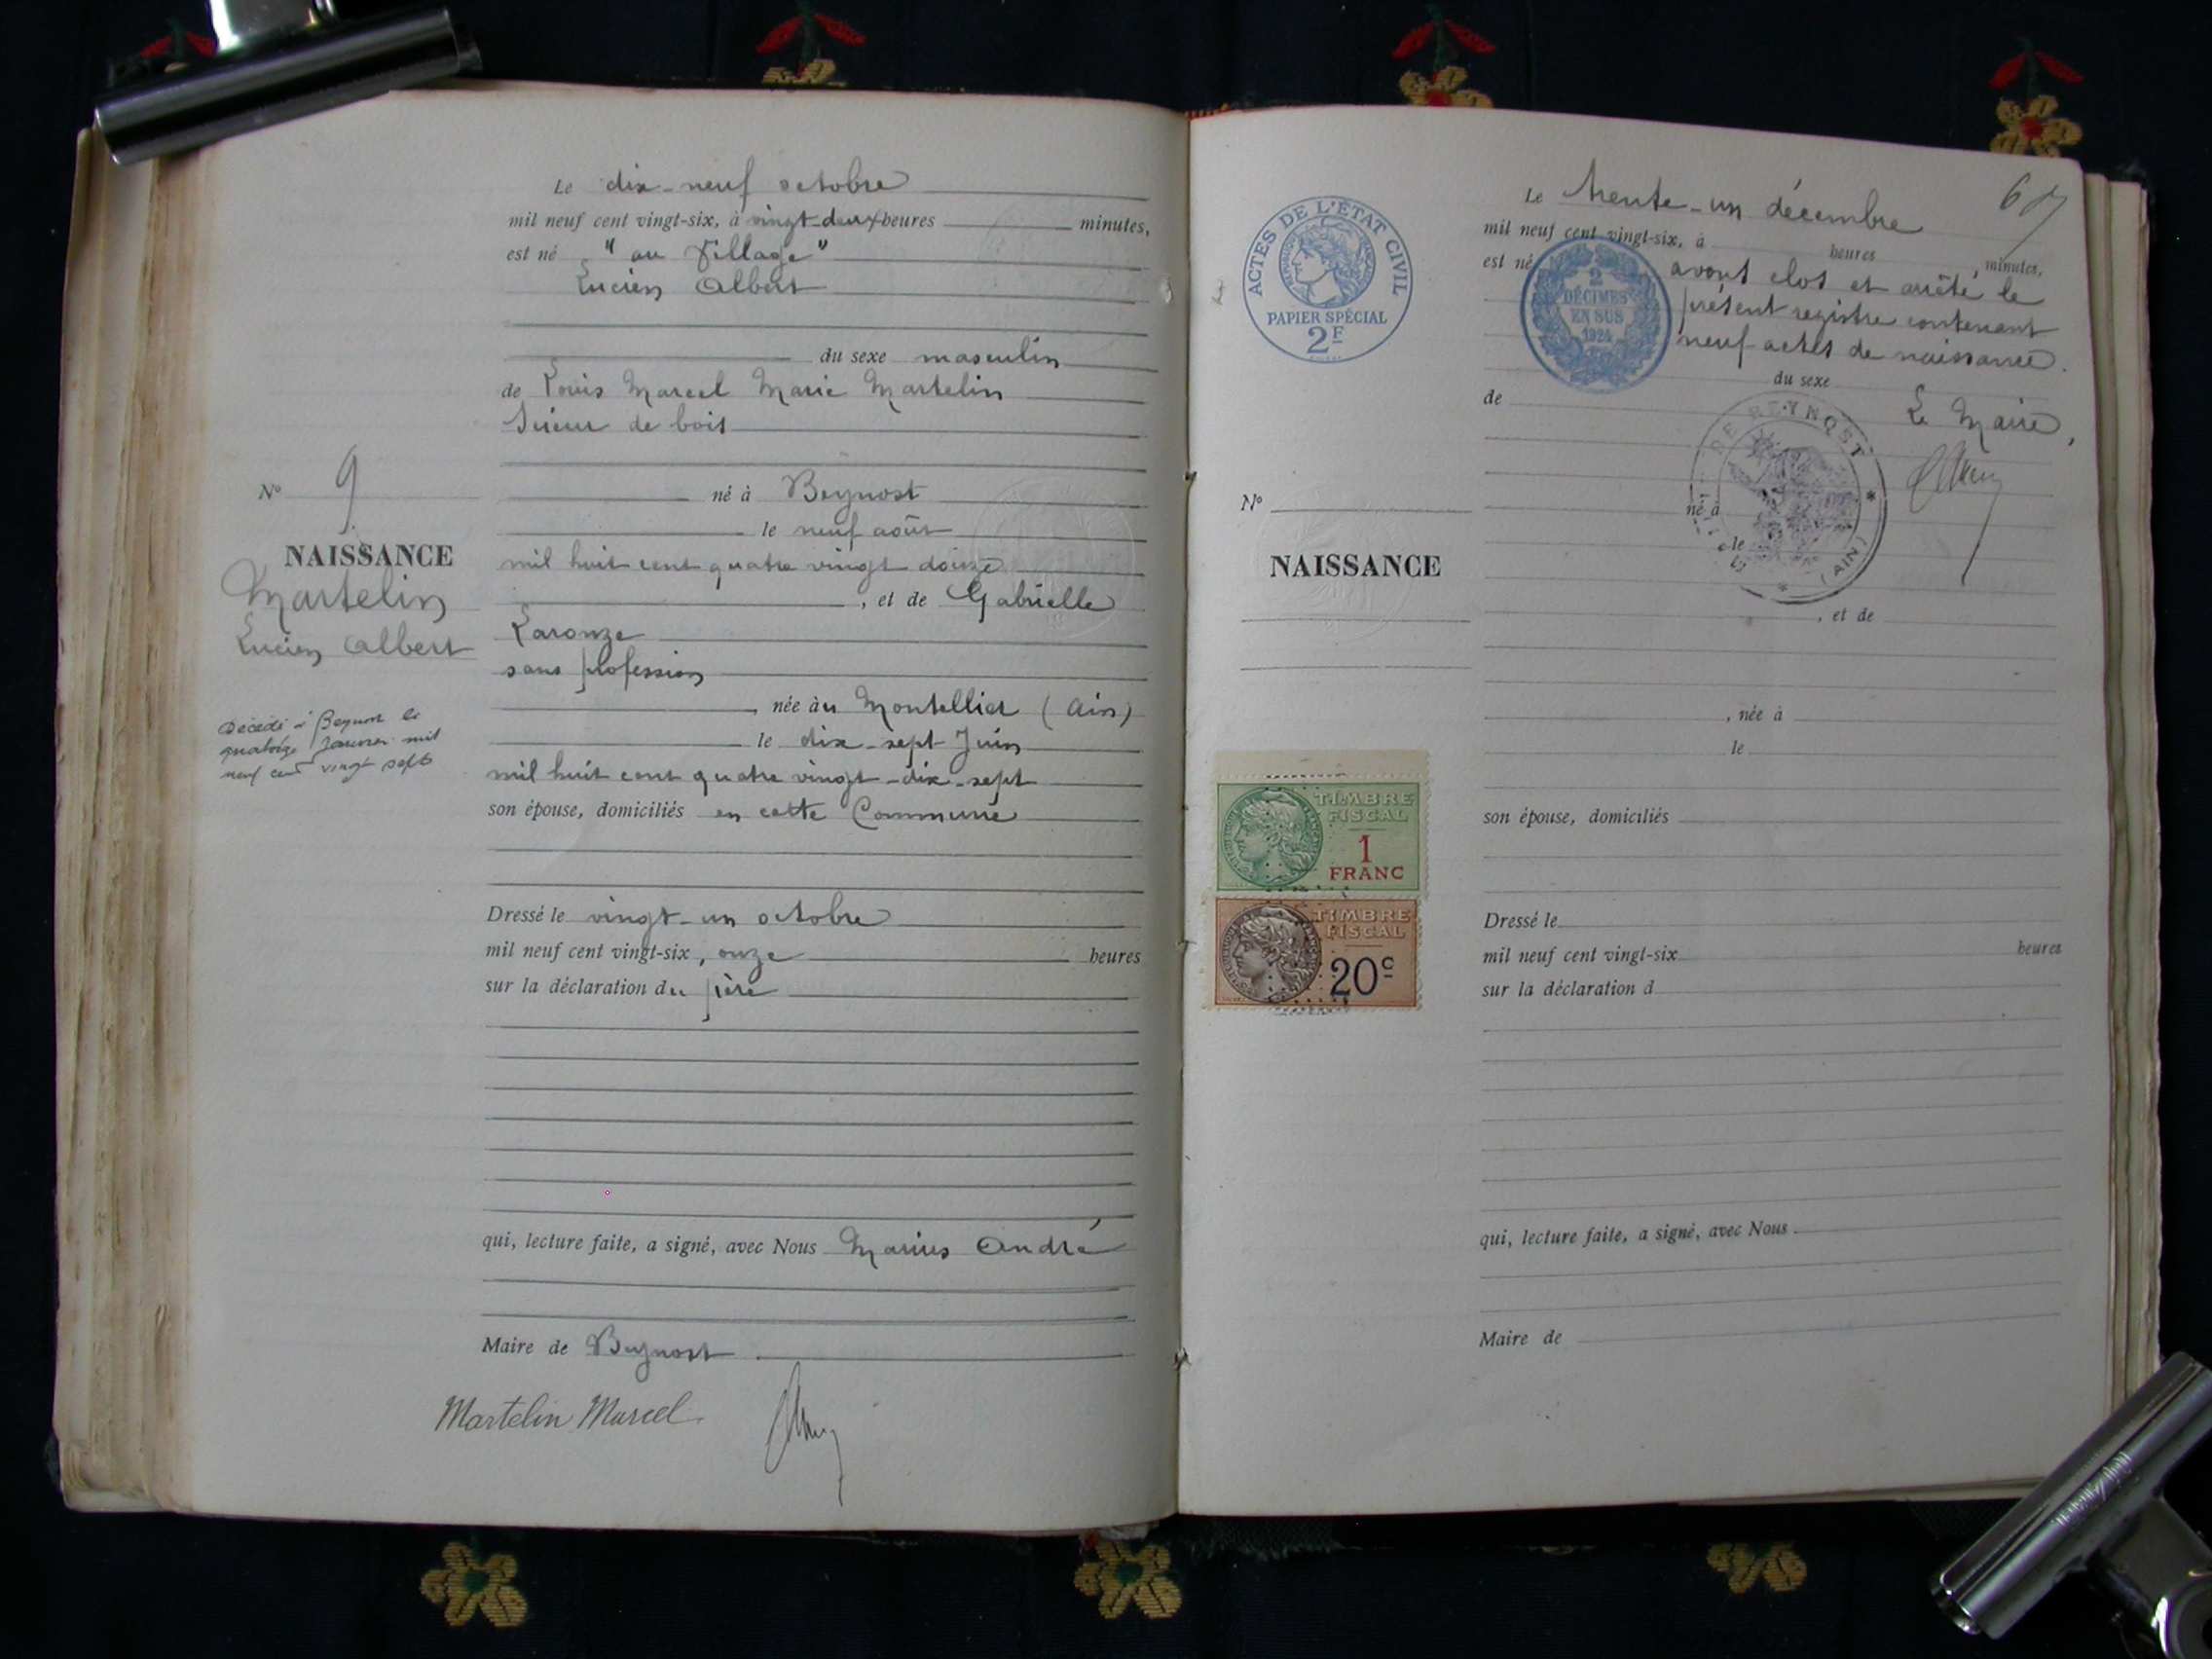 Le dix-neuf octobre
mil neuf cent vingt-six, à vingt-deux heures minutes,
est né "au Village"
Lucien Albert
du sexe masculin
de Louis Marcel Marie Martelin
Scieur de bois
né à Beynost
le neuf août
mil huit cent quatre vingt douze
, et de Gabrielle
Laronze
sans profession
, née au Montellier (Ain)
le dix-sept Juin
mil huit cent quatre vingt-dix-sept
son épouse, domiciliés en cette Commune
Dressé le vingt-un octobre
mil neuf cent vingt-six, onze heures
sur la déclaration du père
qui, lecture faite, a signé, avec Nous Marius André
Maire de Beynost
Martelin Marcel
N° 9
NAISSANCE
Martelin
Lucien Albert
Décédé à Beynost le
quatorze Janvier mil
neuf cent vingt sept
ACTES DE L'ÉTAT CIVIL
PAPIER SPÉCIAL
2F
N°
NAISSANCE
TIMBRE
FISCAL
1
FRANC
TIMBRE
FISCAL
20c
Le trente-un décembre
mil neuf cent vingt-six, à heures minutes,
est né avons clos et arrêté le
présent registre contenant
neuf actes de naissance.
2
DÉCIMES
EN SUS
1924
du sexe
de Le Maire,
DE BEYNOST
(AIN)
né à
le
, et de
, née à
le
son épouse, domiciliés
Dressé le
mil neuf cent vingt-six heures
sur la déclaration d
qui, lecture faite, a signé, avec Nous
Maire de